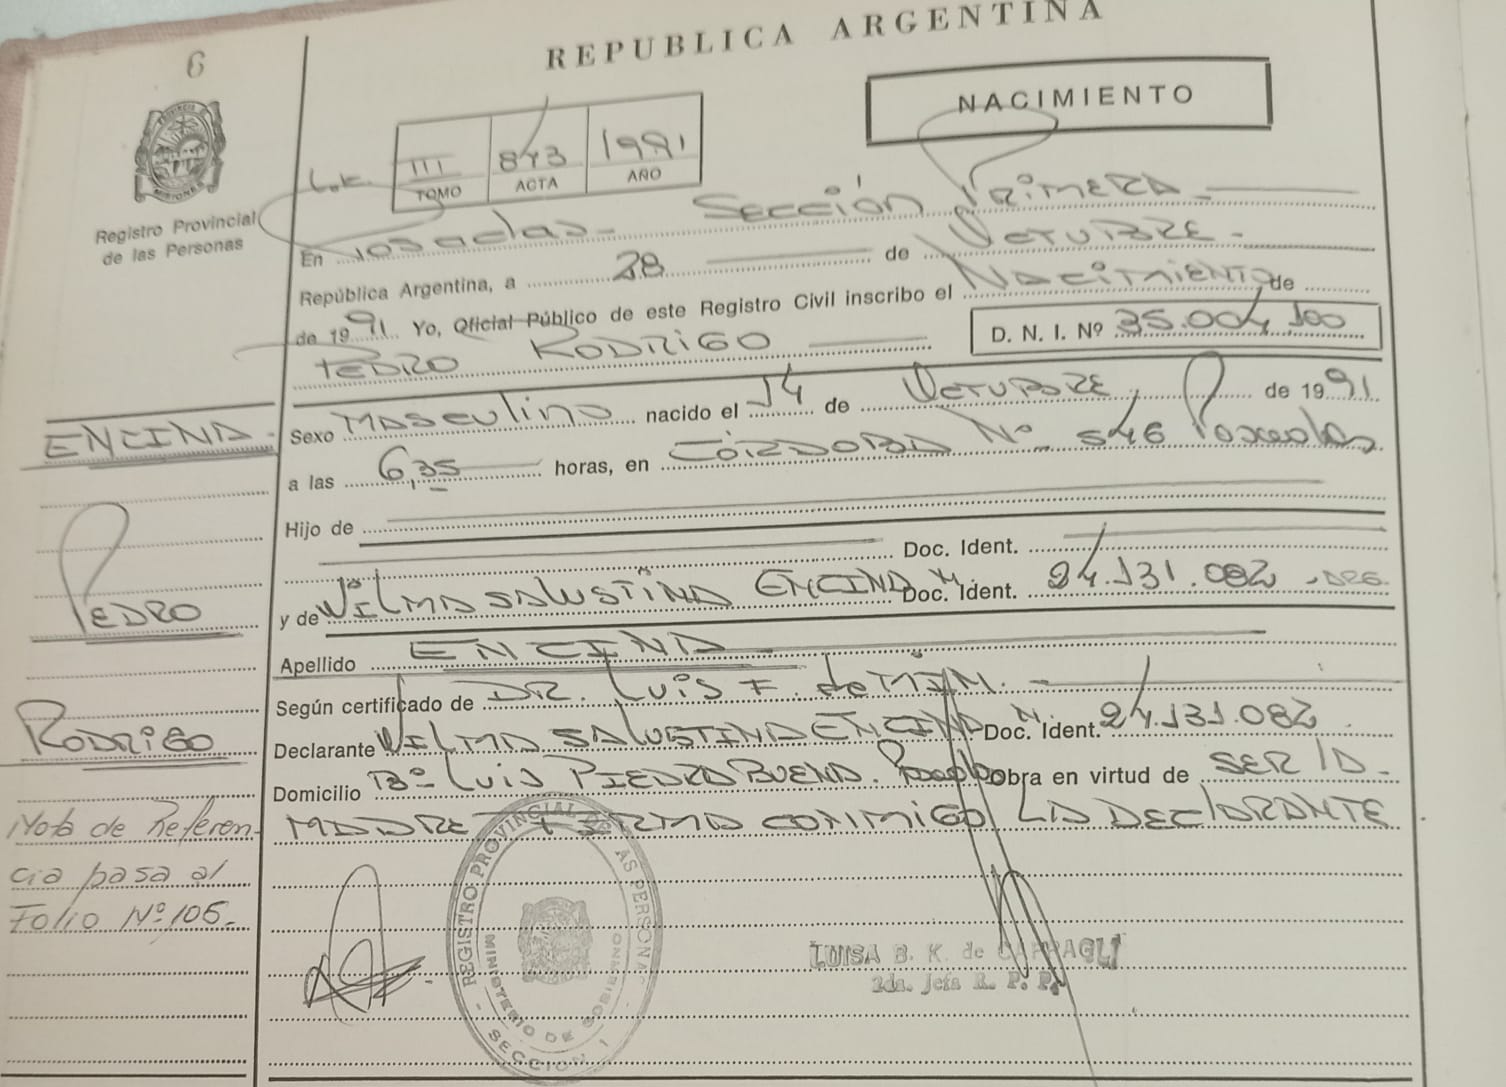 REPUBLICA ARGENTINA
6
NACIMIENTO
III 1991
TOMO ACTA AÑO
Registro Provincial
de las Personas
En Posadas - Sección Primera
República Argentina, a 28 de Octubre -
de 1991 Yo, Oficial Público de este Registro Civil inscribo el Nacimiento de
PEDRO RODRIGO D. N. I. Nº 35.004.100
ENCINA -
Sexo Masculino nacido el 14 de Octubre de 1991
a las 6,35 horas, en CÓRDOBA Nº 546 Posadas
Hijo de
Doc. Ident.
PEDRO
y de VILMA SALUSTINA ENCINA Doc. Ident. 24.131.082
Apellido ENCINA
Según certificado de DR. Luis F. de
RODRIGO
Declarante VILMA SALUSTINA ENCINA Doc. Ident. 24.131.082
Domicilio Bº Luis PIEDRA BUENA. Posadas obra en virtud de SER LA
MADRE Y FIRMA CONMIGO LA DECLARANTE
Nota de Referen
cia pasa al
Folio Nº 105.-
REGISTRO PROVINCIAL DE LAS PERSONAS
MINISTERIO DE GOBIERNO
- SECCION 1 -
LUISA B. K. de
2da. Jefa R. P. P.